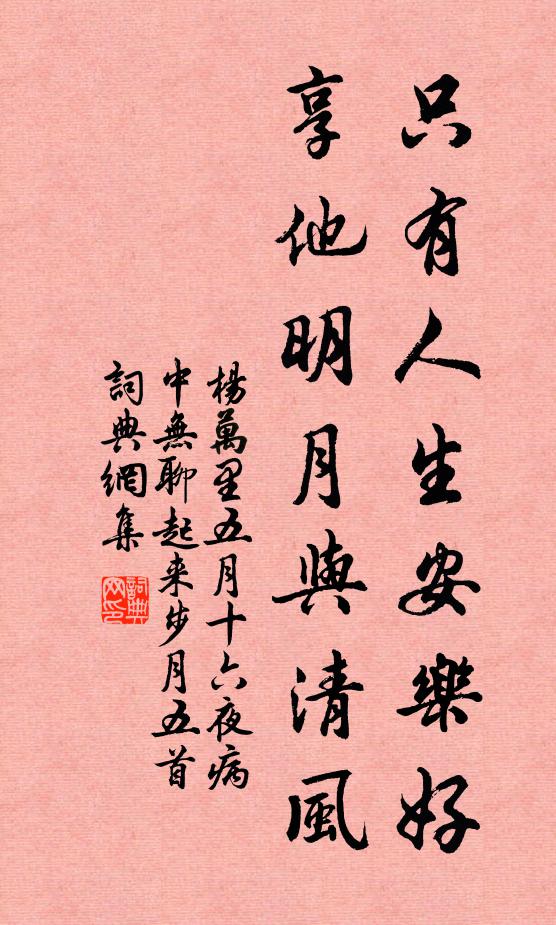 只有人生安樂好
享他明月與清風
楊萬里五月十六夜病
中無聊起来步月五首
詞典網集
詞典網印